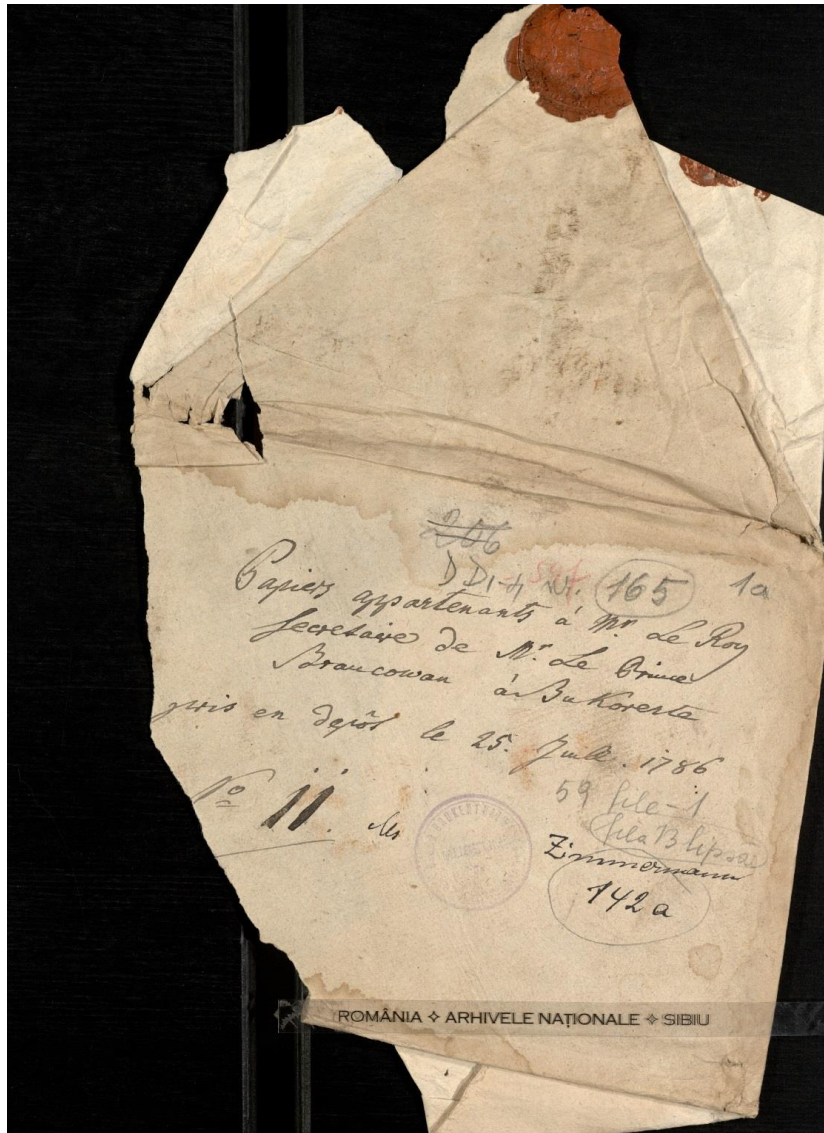 206
DD1-4 Nr. 165 1a
Papiers appartenants à Mr. Le Roy
Secretaire de Mr. Le Prince
Brancowan à Bukoreste
pris en depôt le 25. Juill. 1786
No 11.
59 file-1
fila 13 lipsă
Zimmermann
142a
ROMÂNIA ✧ ARHIVELE NAȚIONALE ✧ SIBIU